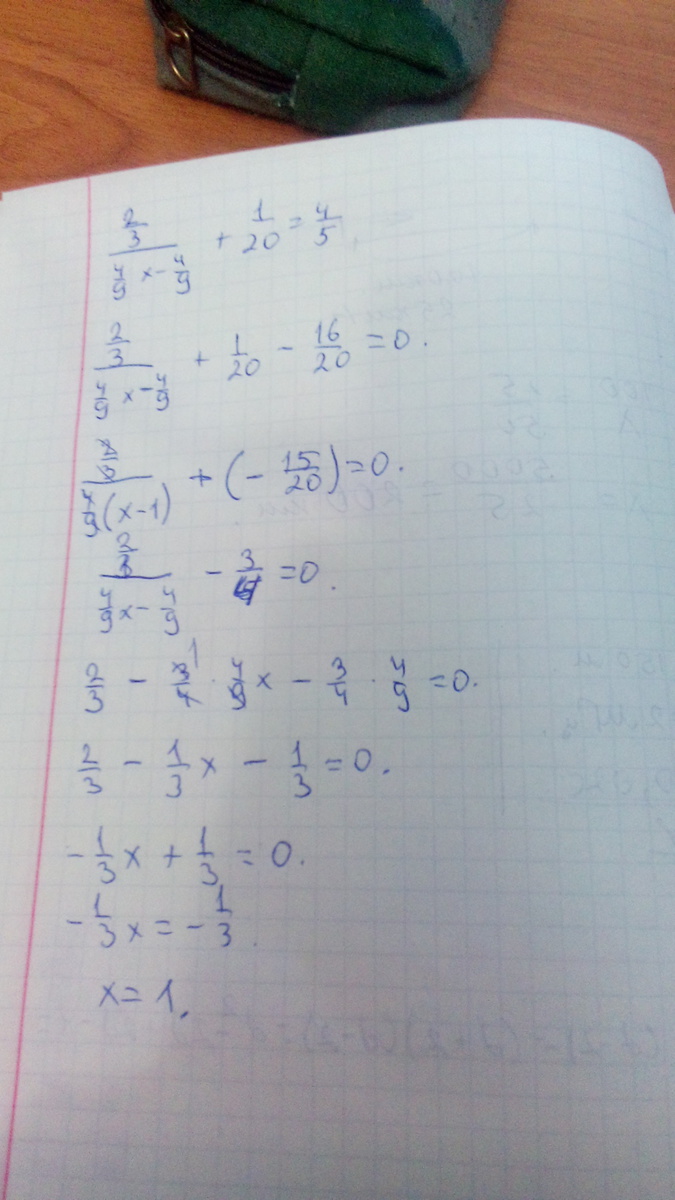 (2/3)/(4/9 x - 4/9) + 1/20 = 4/5,
(2/3)/(4/9 x - 4/9) + 1/20 - 16/20 = 0.
(2/3)/(4/9 (x-1)) + (- 15/20) = 0.
(2/3)/(4/9 x - 4/9) - 3/4 = 0.
2/3 - 3/4 · 4/9 x - 3/4 · 4/9 = 0.
2/3 - 1/3 x - 1/3 = 0.
- 1/3 x + 1/3 = 0.
- 1/3 x = - 1/3.
x = 1.